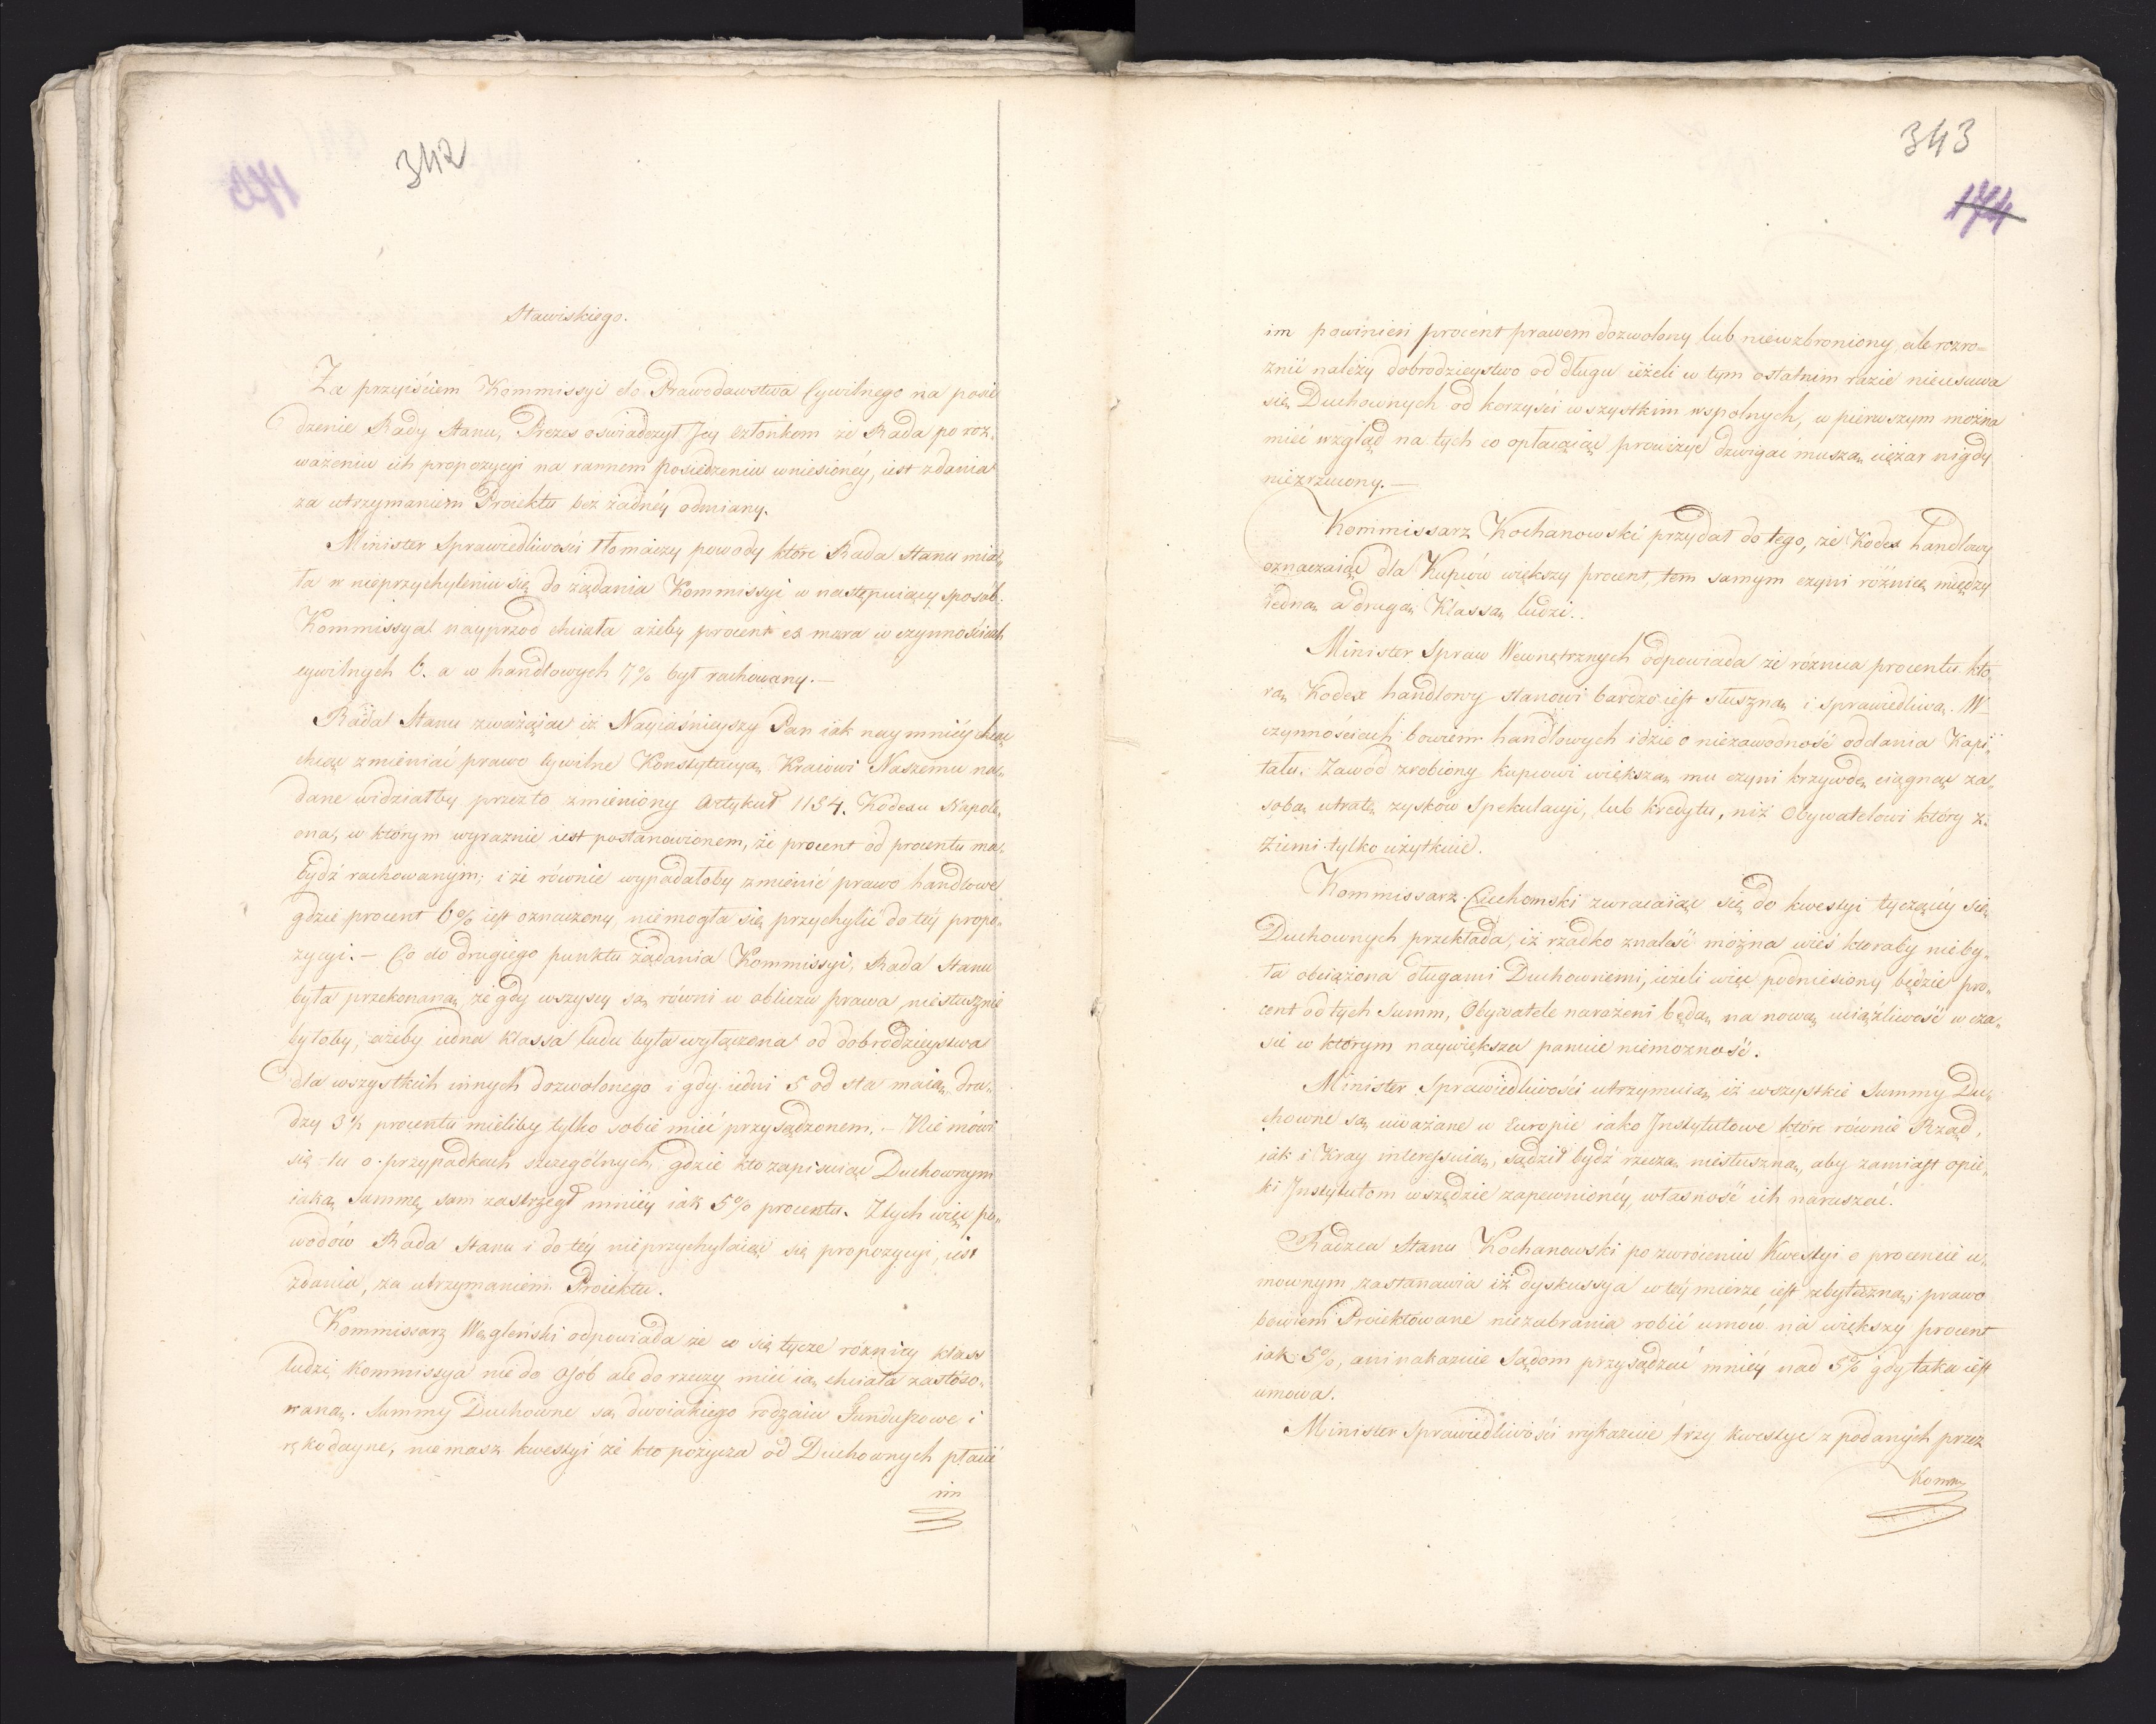 342
Stawiskiego.
Za przyiściem Kommissyi do Prawodawstwa Cywilnego na posie
dzenie Rady Stanu, Prezes oswiadczył Jey Członkom że Rada po roz-
ważeniu ich propozycyi na rannem posiedzeniu wniesionéy, iest zdania
za utrzymaniem Proiektu bez żadnéy odmiany.
Minister Sprawiedliwości tłomaczy powody które Rada Stanu mia-
ła w nieprzychyleniu się do żądania Kommissyi w następuiący sposób.
Kommissya nayprzod chciała ażeby procent ex mora w czynnościach
cywilnych 6. a w handlowych 7% był rachowany.—
Rada Stanu zważaiąc iż Nayiaśnieyszy Pan iak naymniéy chcąc
chcąc zmieniać prawo Cywilne Konstytucyą Kraiowi Naszemu na-
dane widziałby przez to zmieniony Artykuł 1154. Kodexu Napole-
ona, w którym wyraznie iest postanowionem, że procent od procentu ma
bydź rachowanym; i że równie wypadałoby zmienić prawo handlowe
gdzie procent 6% iest oznaczony, niemogła się przychylić do téy propo-
zycyi.— Co do drugiego punktu żądania Kommissyi, Rada Stanu
była przekonaną, że gdy wszyscy są równi w obliczu prawa, niesłusznie
byłoby, ażeby iedna klassa ludu była wyłączona od dobrodzieystwa
dla wszystkich innych dozwolonego i gdy iedni 5 od sta maią, dru-
dzy 3½ procentu mieliby tylko sobie mieć przysądzonem.— Nie mówi
się tu o przypadkach szczególnych, gdzie kto zapisuiąc Duchownym
iaką summę, sam zastrzegł mniéy iak 5% procentu. Z tych więc po-
wodów Rada Stanu i do téy nieprzychylaiąc się propozycyi, iest
zdania, za utrzymaniem Proiektu.
Kommissarz Węgleński odpowiada że co się tycze różnicy klass
ludzi, Kommissya nie do osób ale do rzeczy mieć ią chciała zastóso-
waną. Summy Duchowne są dwoiakiego rodzaiu Funduszowe i
rękodayne, nie masz kwestyi że kto pożycza od Duchownych płacić
im
343
174
im powinien procent prawem dozwolony lub niewzbroniony, ale rozro-
znić należy dobrodzieystwo od długu ieżeli w tym ostatnim razie nieusuwa
się Duchownych od korzyści wszystkim wspolnych, w pierwszym można
mieć wzgląd na tych co opłacaiąc prowizyę dzwigać muszą ciężar nigdy
niezrzucony.—
Kommissarz Kochanowski przydał do tego, że Kodex handlowy
oznaczaiąc dla Kupców większy procent, tem samym czyni różnicę między
iedną a drugą Klassą ludzi.
Minister Spraw Wewnętrznych odpowiada że różnica procentu któ-
rą Kodex handlowy stanowi bardzo iest słuszną i sprawiedliwą. W
czynnościach bowiem handlowych idzie o niezawodność oddania Kapi-
tału. Zawód zrobiony Kupcowi większą mu czyni krzywdę ciągnąc za
sobą utratę zysków Spekulacyi, lub kredytu, niż Obywatelowi który z
ziemi tylko użytkuie.
Kommissarz Cichomski zwracaiąc się do kwestyi tyczącéy się
Duchownych przekłada, iż rzadko znaleść można wieś któraby nieby-
ła obciążona długami Duchownemi, ieżeli więc podniesiony będzie pro-
cent od tych Summ, Obywatele narażeni będą na nową uciążliwość w cza-
sie w którym naywiększa panuie niemożność.
Minister Sprawiedliwości utrzymuią iż wszystkie Summy Du-
chowne są uważane w Europie iako Instytutowe które równie Rząd,
iak i Kray interessuią, sądził bydź rzeczą niesłuszną, aby zamiast opie-
ki Instytutom wszędzie zapewnionéy, własność ich naruszać.
Radzca Stanu Kochanowski po zwróceniu Kwestyi o procencie u-
mownym zastanawia iż dyskussya w téy mierze iest zbyteczną; prawo
bowiem Proiektowane niezabrania robić umów na większy procent
iak 5%, ani nakazuie Sądom przysądzać mniéy nad 5% gdy taka iest
umowa.
Minister Sprawiedliwości wykazuie trzy kwestye z podanych przez
Komm